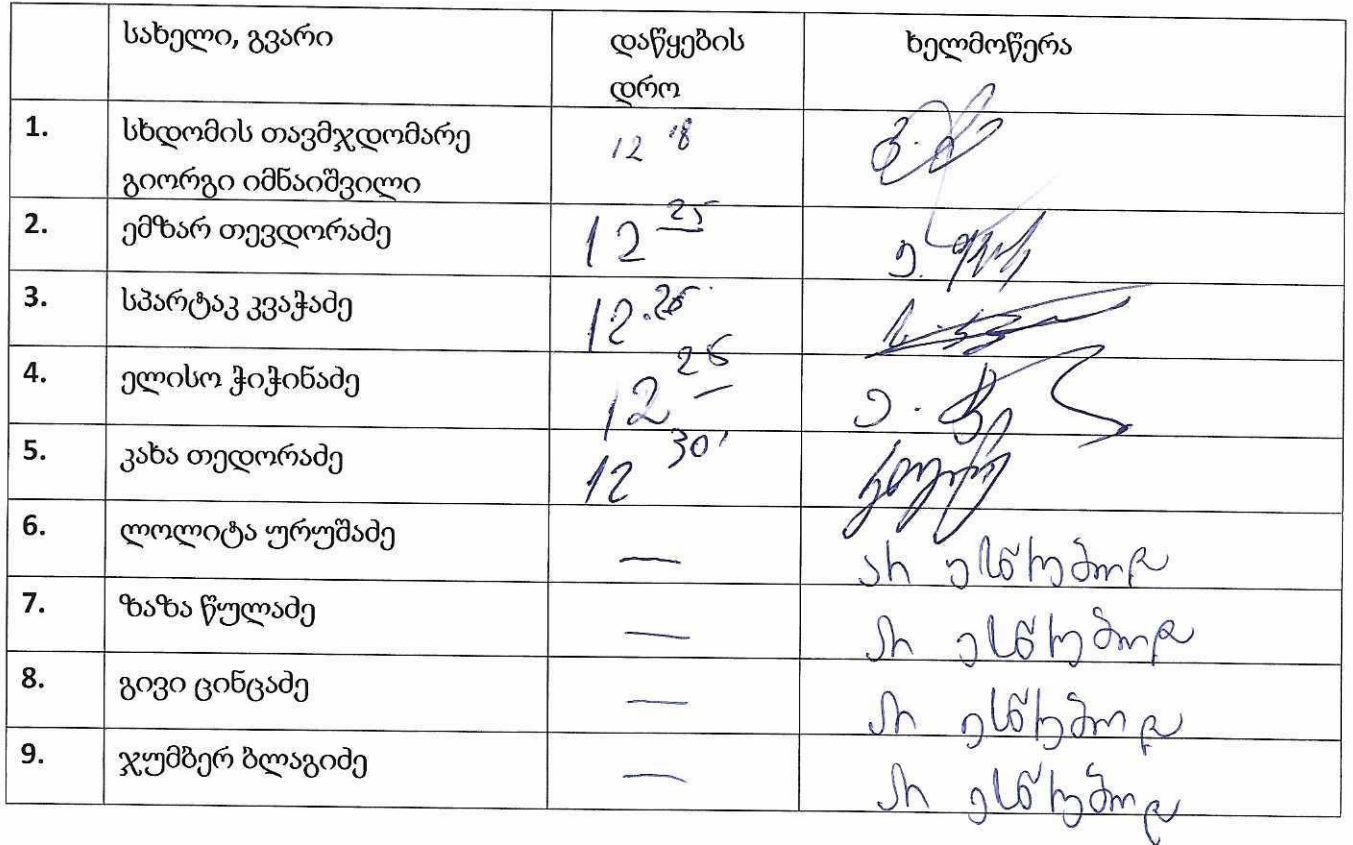 სახელი, გვარი დაწყების ხელმოწერა
დრო
1. სხდომის თავმჯდომარე 12 18
გიორგი იმნაიშვილი
2. ემზარ თევდორაძე 12 25
3. სპარტაკ კვაჭაძე 12.25
4. ელისო ჭიჭინაძე 12 25
5. კახა თედორაძე 12 30'
6. ლოლიტა ურუშაძე — არ ესწრებოდა
7. ზაზა წულაძე — არ ესწრებოდა
8. გივი ცინცაძე — არ ესწრებოდა
9. ჯუმბერ ბლაგიძე — არ ესწრებოდა